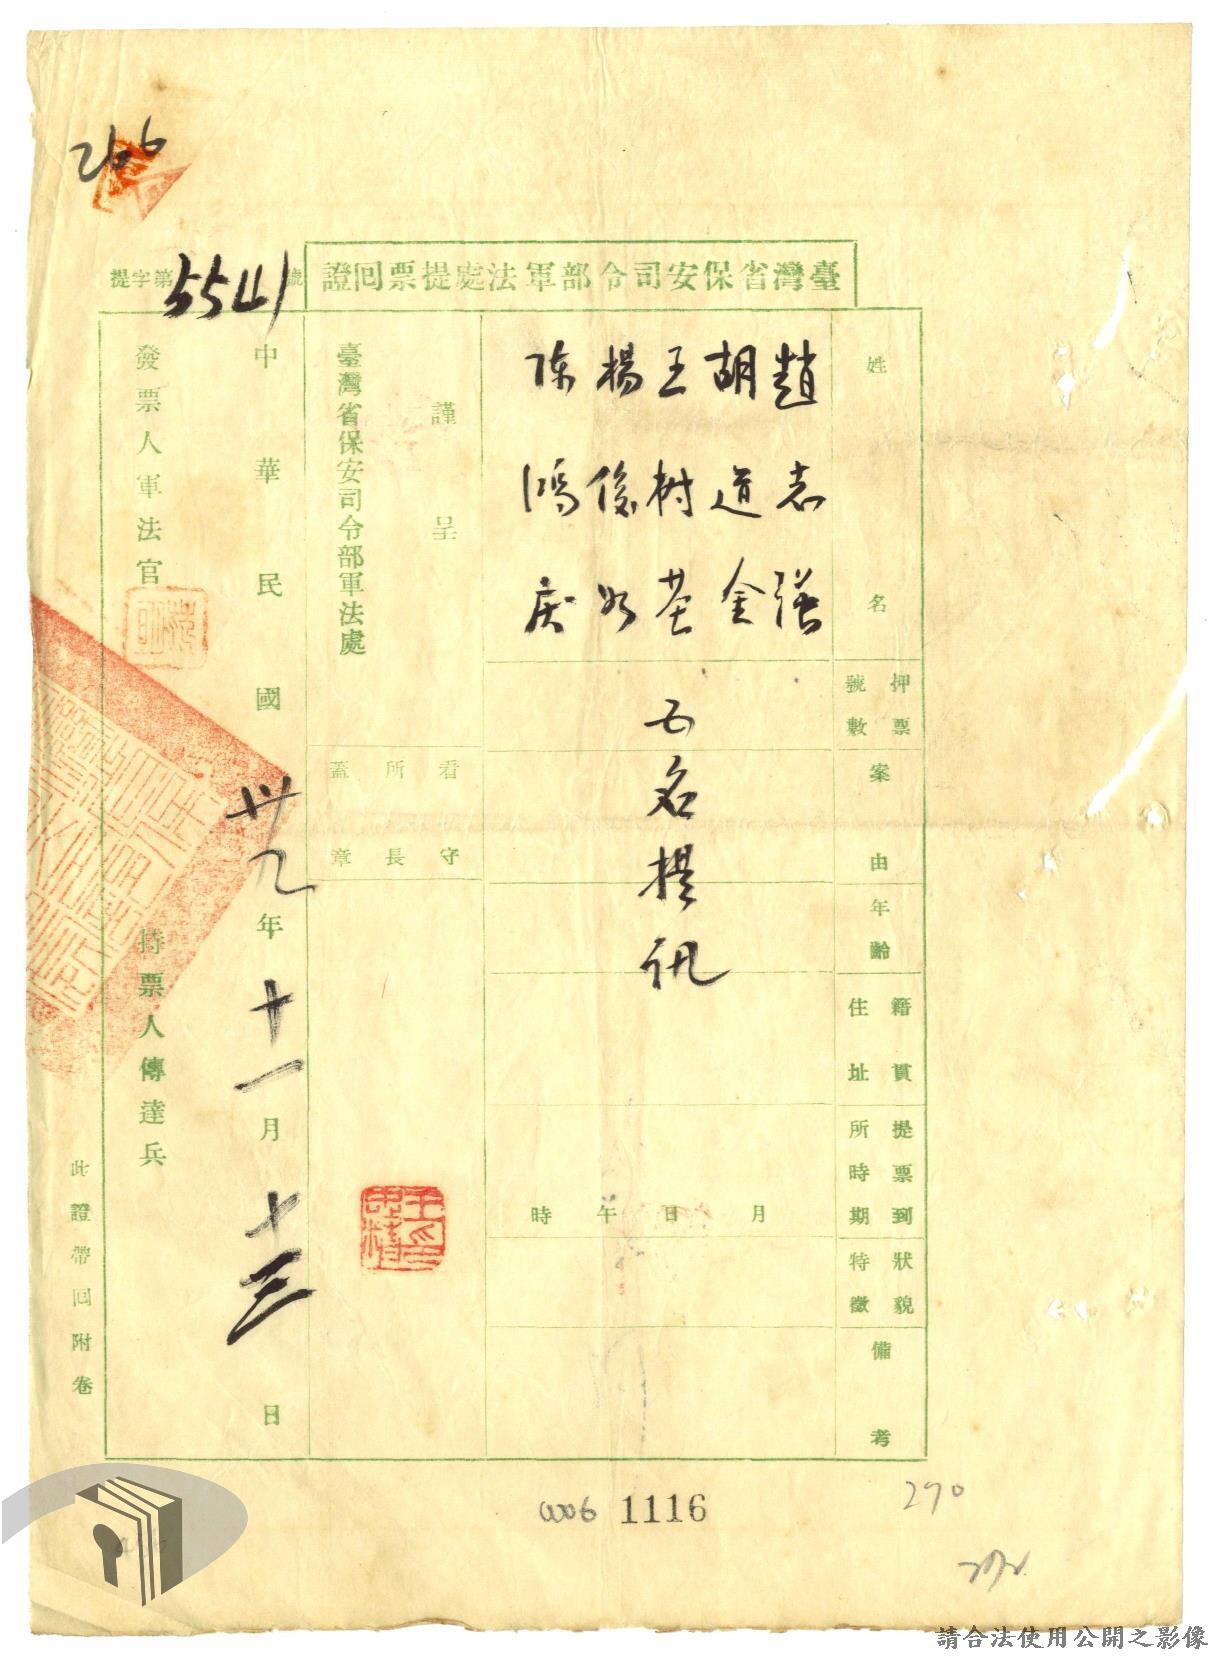 266
臺灣省保安司令部軍法處提票回證
提字第5541號
姓名
押票號數
案由
年齡
籍貫住址
提票到所時期
狀貌特徵
備考
趙志強
胡道金
王樹基
楊俊如
陈鴻庆
五名提訊
月日午時
謹呈
臺灣省保安司令部軍法處
看守所長蓋章
中華民國卅九年十一月十三日
發票人軍法官
持票人傳達兵
此證帶回附卷
0006 1116
290
請合法使用公開之影像